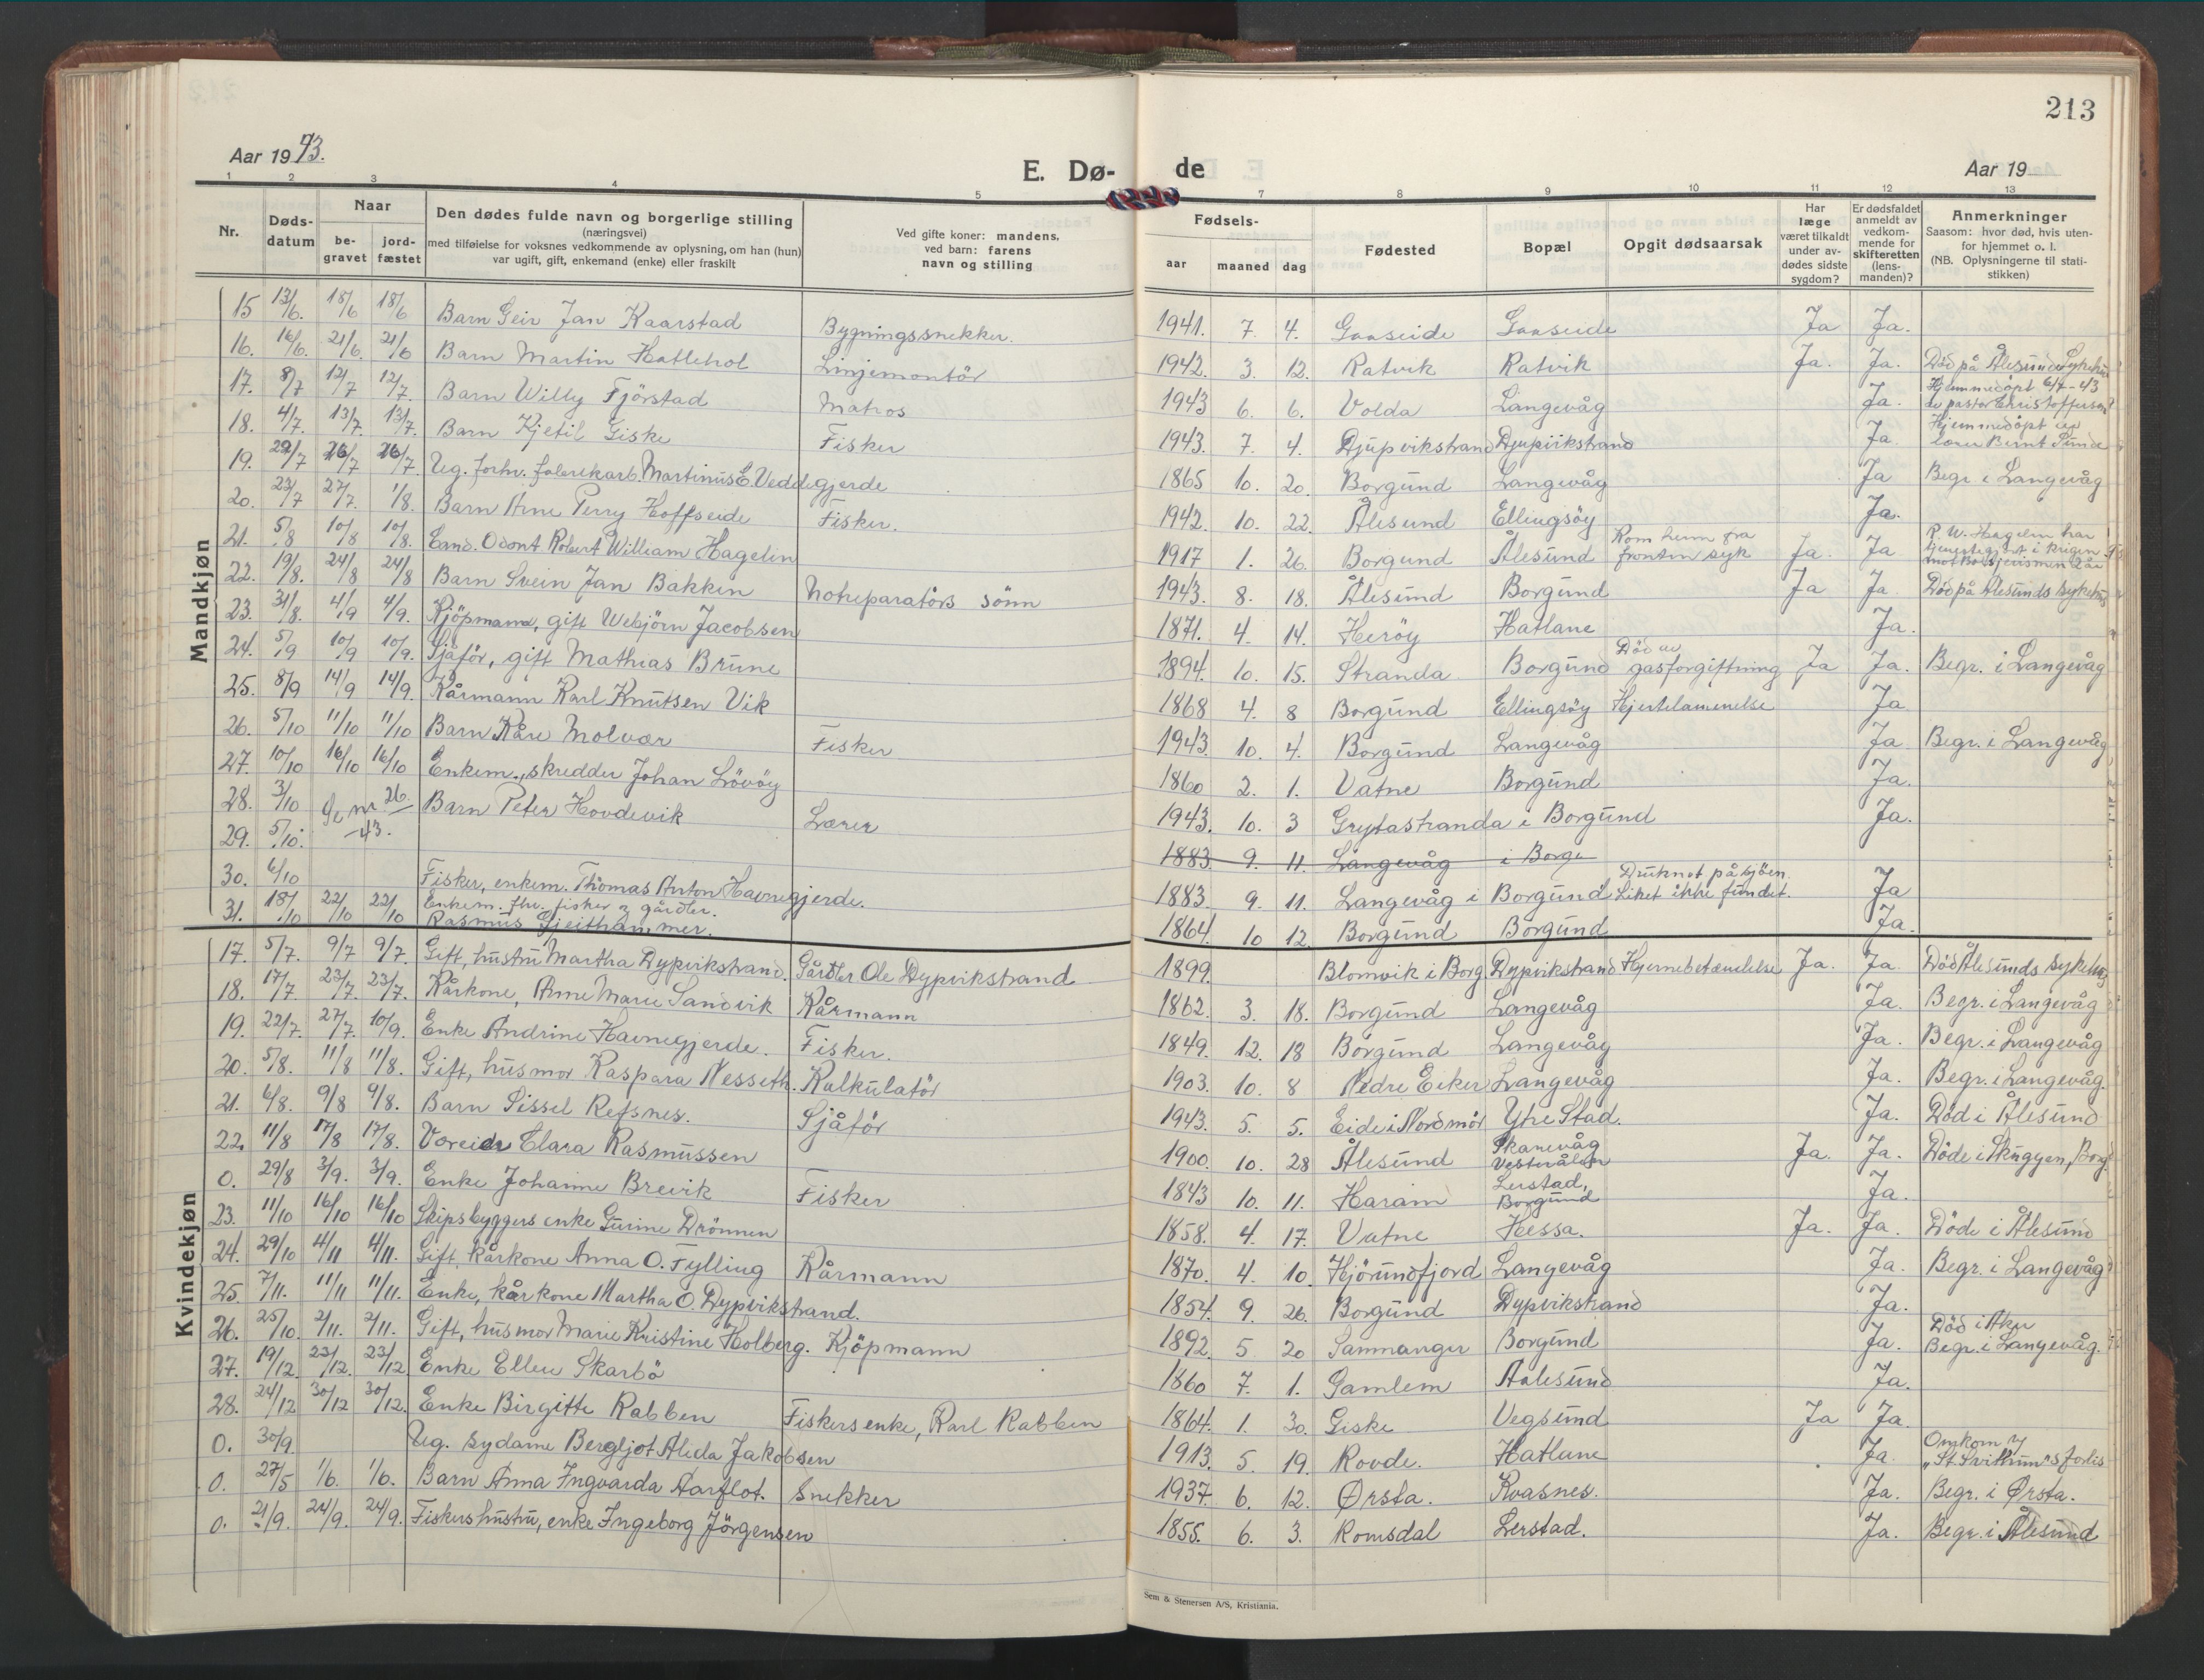 213
Aar 1943.
E. Dø-
de
Aar 19
1 2 3 4 5 7 8 9 10 11 12 13
Nr.
Døds-
datum
Naar
be-
gravet
jord-
fæstet
Den dødes fulde navn og borgerlige stilling
(næringsvei)
med tilføielse for voksnes vedkommende av oplysning, om han (hun)
var ugift, gift, enkemand (enke) eller fraskilt
Ved gifte koner: mandens,
ved barn: farens
navn og stilling
Fødsels-
aar maaned dag
Fødested
Bopæl
Opgit dødsaarsak
Har
læge
været tilkaldt
under av-
dødes sidste
sygdom?
Er dødsfaldet
anmeldt av
vedkom-
mende for
skifteretten
(lens-
manden)?
Anmerkninger
Saasom: hvor død, hvis uten-
for hjemmet o. l.
(NB. Oplysningerne til stati-
stikken)
Mandkjøn
15 13/6. 18/6 18/6 Barn Geir Jan Kaarstad Bygningssnekker. 1941. 7. 4. Gaaseide Gaaseide Ja Ja.
16. 16/6. 21/6. 21/6 Barn Martin Hatlehol Linjemontör 1942. 3. 12. Ratvik Ratvik Ja. Ja. Död på Ålesunds Sykehus
17. 8/7 12/7 12/7. Barn Willy Fjörstad Matros 1943 6. 6. Volda Langevåg Ja. Hjemmedöpt 6/7-43 av pastor Christoffersen
18. 4/7. 13/7. 13/7. Barn Kjetil Giske Fisker 1943. 7. 4. Djupvikstrand Djupvikstrand Ja. Hjemmedöpt av lærer Bernt Sunde
19. 22/7 26/7 26/7. Ug. forhv. fabrikkarb. Martinus E. Veddegjerde 1865 10. 20. Borgund Langevåg Ja Begr. i Langevåg
20. 23/7 27/7. 1/8. Barn Arne Perry Hoffseide Fisker. 1942. 10. 22. Ålesund Ellingsöy Ja.
21. 5/8 10/8 10/8. Cand. Odont Robert William Hagelin 1917 1. 26. Borgund Ålesund Kom hjem fra fronten syk Ja. Ja R. W. Hagelin har tjenestegjort i krigen mot Bolsjevismen
22. 19/8. 24/8 24/8 Barn Svein Jan Bakken Notreparatörs sönn 1943. 8. 18. Ålesund Borgund Ja Ja Död på Ålesunds sykehus
23. 31/8. 4/9 4/9. Kjöpmann, gift Webjörn Jacobsen 1871. 4. 14. Heröy Hatlane Ja.
24. 5/9 10/9 10/9. Sjåför, gift Mathias Brune 1894. 10. 15. Stranda Borgund Död av gasforgiftning Ja Ja. Begr. i Langevåg
25. 8/9 14/9 14/9. Kårmann Karl Knutsen Vik 1868 4. 8 Borgund Ellingsöy Hjertelammelse Ja
26. 5/10 11/10 11/10 Barn Kåre Molvær Fisker 1943. 10. 4. Borgund Langevåg Ja. Begr. i Langevåg
27. 10/10 16/10 16/10 Enkem., skredder Johan Lövöy 1860 2. 1. Vatne Borgund Ja.
28. 3/10 Barn Peter Hovdevik Lærer 1943. 10. 3 Grytastranda i Borgund Ja.
29. 5/10. Se nr 26. -43. 1883. 9. 11. Langevåg i Borgu
30. 6/10 Fisker, enkem. Thomas Anton Havnegjerde. 1883. 9. 11. Langevåg i Borgund Druknet på sjöen. Liket ikke fundet. Ja
31. 18/10 22/10 22/10 Enkem. fhv. fisker & gårdbr. Rasmus Gjeithammer. 1864. 10 12. Borgund Borgund Ja.
Kvindekjøn
17. 5/7. 9/7 9/7. Gift, hustru Martha Dypvikstrand. Gårdbr Ole Dypvikstrand 1899. Blomvik i Borg. Dypvikstrand Hjernebetændelse Ja. Ja. Död Ålesunds sykehus
18. 17/7. 23/7. 23/7. Kårkone, Anne Marie Sandvik Kårmann 1862. 3. 18. Borgund Langevåg Ja. Begr. i Langevåg
19. 22/7. 27/7. 10/9. Enke Andrine Havnegjerde. Fisker. 1849. 12. 18 Borgund Langevåg Ja. Begr. i Langevåg
20. 5/8. 11/8 11/8. Gift, husmor Kaspara Nesseth. Kalkulatör 1903. 10. 8 Nedre Eiker Langevåg Ja. Begr. i Langevåg.
21. 6/8. 9/8 9/8. Barn Sissel Refsnes. Sjåför 1943. 5. 5. Eide i Nordmör Ytre Stad. Ja. Död i Ålesund
22. 11/8 17/8 17/8. Clara Rasmussen 1900. 10. 28 Ålesund Skanevåg Vesterålen Ja. Ja. Döde i Skuggen, Borg.
0. 29/8 3/9. 3/9. Enke Johanne Brevik Fisker 1843 10. 11. Haram Lerstad, Borgund Ja.
23. 11/10 16/10 16/10 Skipsbyggers enke Gurine Drönnen 1858. 4. 17. Vatne Hessa. Ja. Ja. Döde i Ålesund
24. 29/10 4/11 4/11. Gift, kårkone Anna O. Fylling Kårmann 1870. 4. 10. Hjörundfjord Langevåg Ja. Begr. i Langevåg
25. 7/11. 11/11 11/11. Enke, kårkone Martha O. Dypvikstrand. 1854. 9. 26. Borgund Dypvikstrand Ja.
26. 25/10. 2/11. 2/11. Gift, husmor Marie Kristine Holberg. Kjöpmann 1892. 5 20 Samnanger Borgund Ja. Död i Aker Begr. i Langevåg.
27. 19/12. 23/12. 23/12 Enke Ellen Skarbö 1860 7. 1. Gamlem Aalesund Ja.
28. 24/12 30/12 30/12. Enke Birgitte Rabben Fiskers enke, Karl Rabben 1864. 1. 30. Giske Vegsund Ja Ja.
0. 30/9. Ug. sydame Bergljot Alida Jakobsen 1913. 5. 19. Rovde. Hatlane Ja. Omkom v/ "St. Svithun"s forlis
0. 27/5 1/6. 1/6. Barn Anna Ingvarda Aarflot. Snekker 1937. 6. 12. Ørsta. Kvasnes. Ja. Begr. i Ørsta.
0. 21/9. 24/9. 24/9. Fiskers hustru, enke Ingeborg Jörgensen 1855. 6. 3. Romsdal Lerstad. Ja. Begr. i Ålesund
Sem & Stenersen A/S, Kristiania.